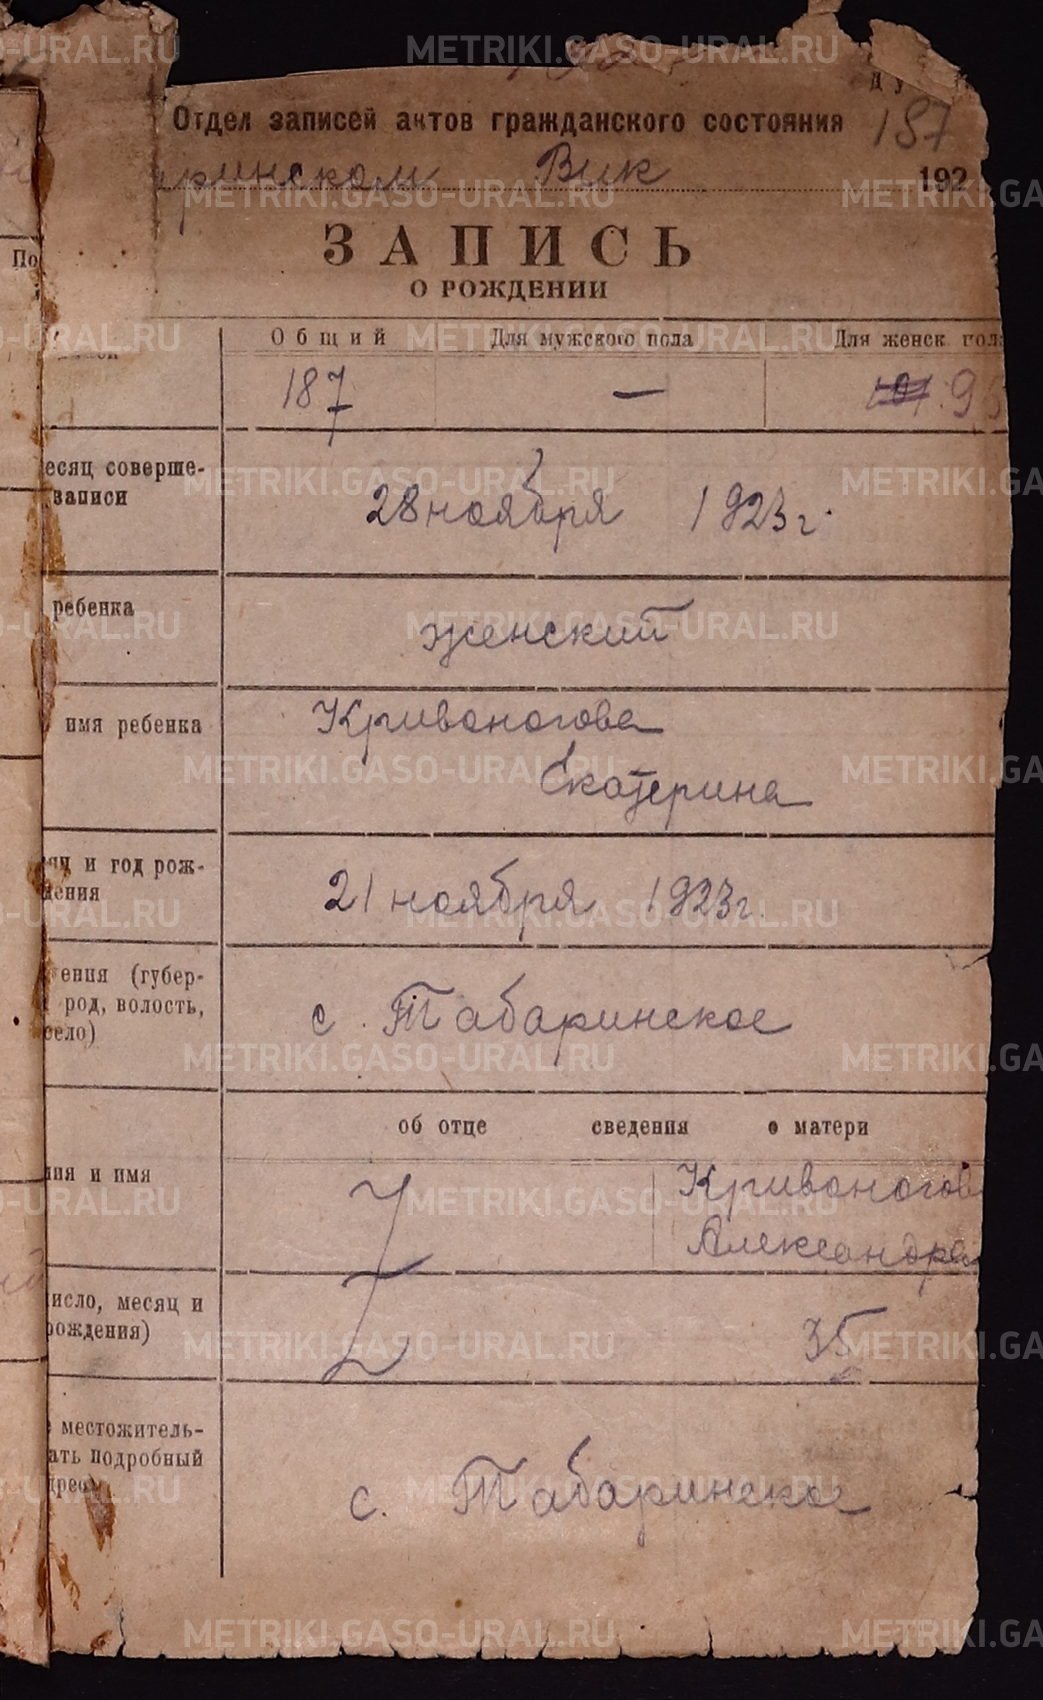 Отдел записей актов гражданского состояния 187
ринском Вик 192
ЗАПИСЬ
О РОЖДЕНИИ
По
Общий Для мужского пола Для женск. пол
187 — 9
есяц соверше-
записи
28 ноября 1923 г.
ребенка
женский
имя ребенка
Кривоногова
Екатерина
и год рож-
дения
21 ноября 1923 г.
ения (губер-
род, волость,
село)
с. Табаринское
об отце сведения о матери
ия и имя
Кривоногов
Александра
исло, месяц и
рождения)
35
местожитель-
ать подробный
дрес
с. Табаринское
METRIKI.GASO-URAL.RU